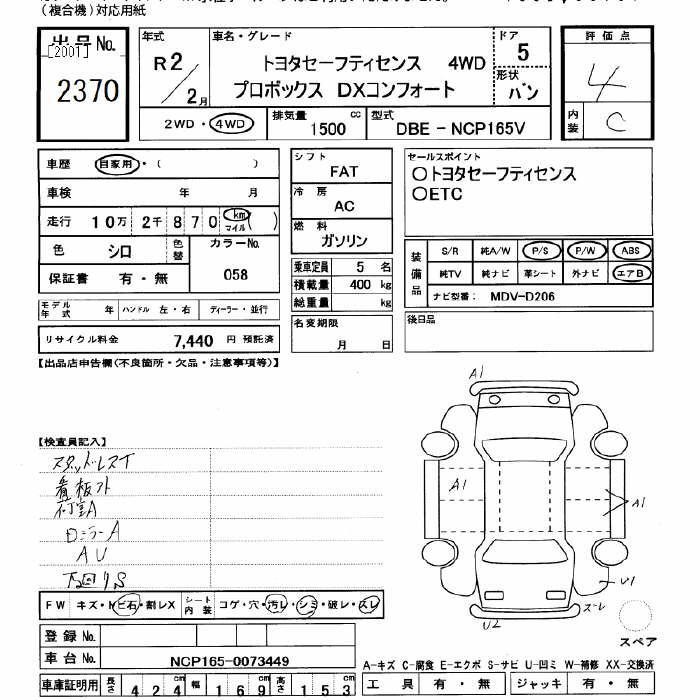 (複合機)対応用紙
出品No.
[200T]
2370
年式
R2/2月
車名・グレード
トヨタセーフティセンス 4WD
プロボックス DXコンフォート
ドア
5
形状
バン
評価点
4
内装
C
2WD・4WD
排気量
1500 cc
型式
DBE-NCP165V
車歴 自家用・( )
車検 年 月
走行 10万 2千 870 km マイル ( )
色 シロ 色替
カラーNo.
058
保証書 有・無
モデル年式 年 ハンドル 左・右 ディーラー・並行
リサイクル料金 7,440 円 預託済
シフト
FAT
冷房
AC
燃料
ガソリン
乗車定員 5 名
積載量 400 kg
総重量 kg
名変期限
月 日
セールスポイント
○トヨタセーフティセンス
○ETC
装備品
S/R 純A/W P/S P/W ABS
純TV 純ナビ 革シート 外ナビ エアB
ナビ型番: MDV-D206
後日品
【出品店申告欄(不良箇所・欠品・注意事項等)】
【検査員記入】
スタッドレスT
看板アト
AU
A1
A1
A1
U1
スーレ
U2
スペア
FW キズ・ヒビ石・割レX シート内装 コゲ・穴・汚レ・シミ・破レ・スレ
登録No.
車台No. NCP165-0073449
車庫証明用 長さ 424 cm 幅 169 cm 高さ 153 cm
A-キズ C-腐食 E-エクボ S-サビ U-凹ミ W-補修 XX-交換済
工具 有・無 ジャッキ 有・無